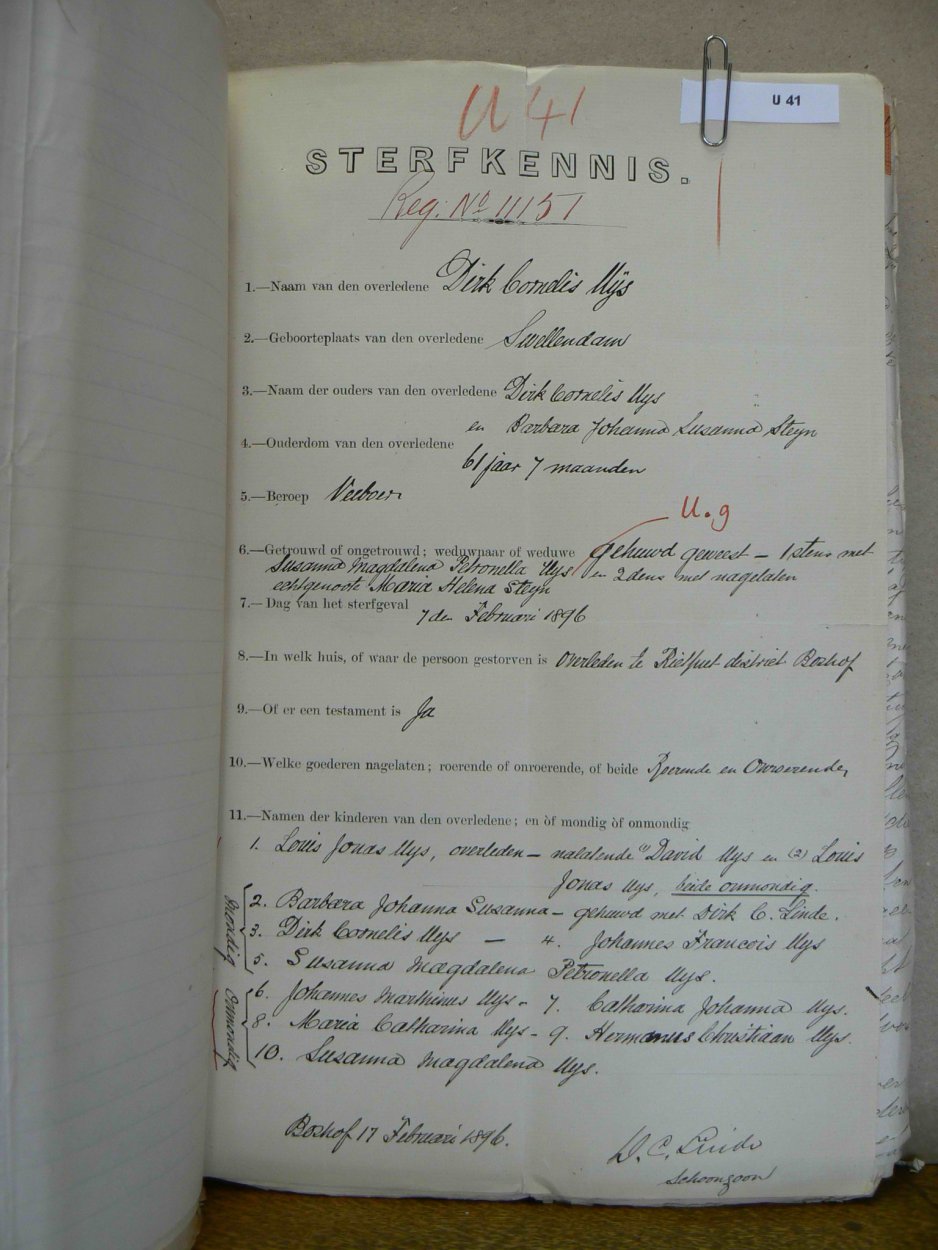 U 41
U 41
STERFKENNIS.
Reg: No 11151
1.—Naam van den overledene Dirk Cornelis Uijs
2.—Geboorteplaats van den overledene Swellendam
3.—Naam der ouders van den overledene Dirk Cornelis Uys
en Barbara Johanna Susanna Steyn
4.—Ouderdom van den overledene
61 jaar 7 maanden
5.—Beroep Veeboer
U.g
6.—Getrouwd of ongetrouwd; weduwnaar of weduwe gehuwd geweest — 1stens met
Susanna Magdalena Petronella Uys en 2dens met nagelaten
echtgenoote Maria Helena Steyn
7.—Dag van het sterfgeval 7den Februari 1896
8.—In welk huis, of waar de persoon gestorven is Overleden te Rietput district Boshof
9.—Of er een testament is Ja
10.—Welke goederen nagelaten; roerende of onroerende, of beide Roerende en Onroerende,
11.—Namen der kinderen van den overledene; en òf mondig òf onmondig
1. Louis Jonas Uys, overleden — nalatende (1) David Uys en (2) Louis
Jonas Uys, beide onmondig.
Mondig
2. Barbara Johanna Susanna — gehuwd met Dirk C. Linde.
3. Dirk Cornelis Uys — 4. Johannes Francois Uys
5. Susanna Magdalena Petronella Uys.
Onmondig
6. Johannes Marthinus Uys — 7. Catharina Johanna Uys.
8. Maria Catharina Uys — 9. Hermanus Christiaan Uys.
10. Susanna Magdalena Uys.
Boshof 17 Februari 1896.
D. C. Linde
Schoonzoon